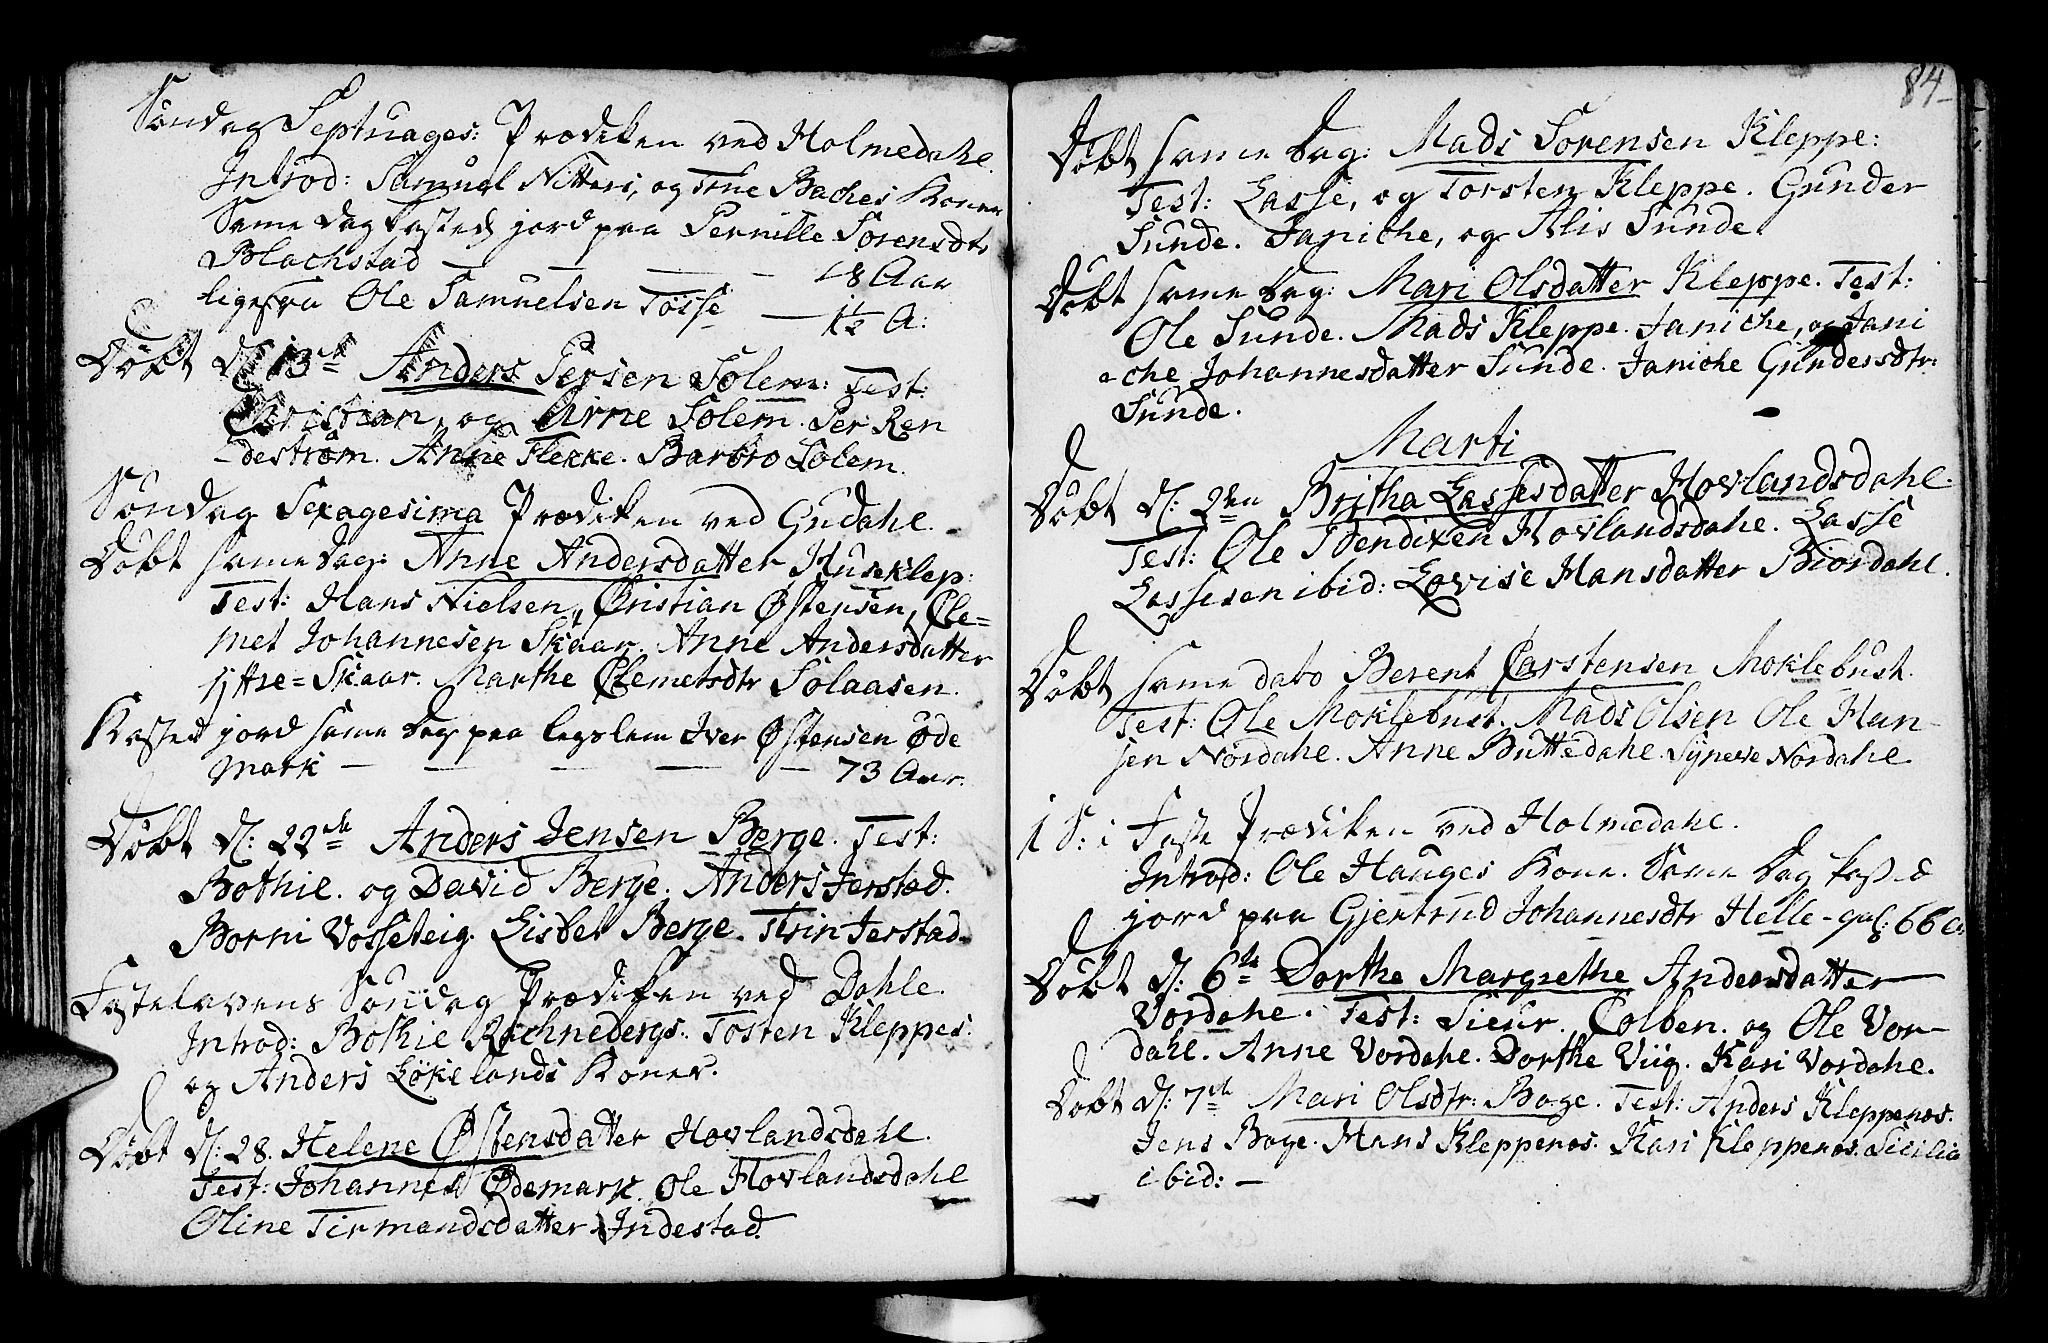 Søndag Septuages: Prædiken ved Holmedahl.
Introd: Samuel Nitters, og True Baches Koner
Same dag kasted jord paa Pernille Sørensdtr
Blachstad — — — — 48 Aar
ligesaa Ole Samuelsen Tøsse — 1½ A:
Døbt d: 13de Anders Persen Solem: Test:
Christian, og Arne Solem. Per Ren
-deström. Anne Flekke. Barbro Solem.
Søndag Sexagesima Prædiken ved Gudahl.
Døbt same dag: Anne Andersdatter Huseklep:
Test: Hans Nielsen, Christian Østensen, Cle=
met Johannesen Skaar. Anne Andersdatter
yttre=Skaar. Marthe Clemetsdtr Solaasen.
Kasted jord same dag paa legslem Iver Østensen Øde
mark — — — — 73 Aar.
Døbt d: 22de Anders Jensen Berge. Test:
Bothil. og David Berge. Anders Jerstad.
Borni Vosseteig. Lisbet Berge. Thrin Jerstad.
Fastelavens Søndag Prædiken ved Dahle.
Introd: Bothie Rachnebergs. Tosten Kleppes.
og Anders Løkelands Koner.
Døbt d: 28. Helene Østensdatter Hovlandsdahl.
Test: Johannes Ødemark. Ole Hovlandsdahl
Oline Tirmandsdatter Indestad.
84
Døbt same dag: Mads Sorensen Kleppe:
Test: Lasse, og Torsten Kleppe. Gunder
Sunde. Janiche, og Alis Sunde.
Døbt same dag: Mari Olsdatter Kleppe. Test:
Ole Sunde. Mads Kleppe. Janiche, og Jani
-che Johannesdatter Sunde. Janiche Gundersdtr:
Sunde.
Marti
Døbt d: 2den Britha Lassesdatter Hovlandsdahl.
Test: Ole Bendixen Hovlandsdahl. Lasse
Lassesen ibid: Lovise Hansdatter Biordahl.
Døbt same dato Berent Carstensen Moklebust.
Test: Ole Moklebust. Mads Olsen Ole Han-
sen Nordahl. Anne Buttedahl. Synneve Nordahl
1 S: i Faste Prædiken ved Holmedahl.
Introd: Ole Hauges Kone. Same dag kasted
jord paa Gjertrud Johannesdtr Helle - gal: 66 A:
Døbt d: 6te Dorthe Margrethe Andersdatter
Vordahl. Test: Sieur. Colben. og Ole Vor-
dahl. Anne Vordahl. Dorthe Viig. Kari Vordahl.
Døbt d: 7de Mari Olsdtr: Boge. Test: Anders Kleppenes.
Jens Boge. Hans Kleppenes. Kari Kleppenes. Sicilia
ibid: —